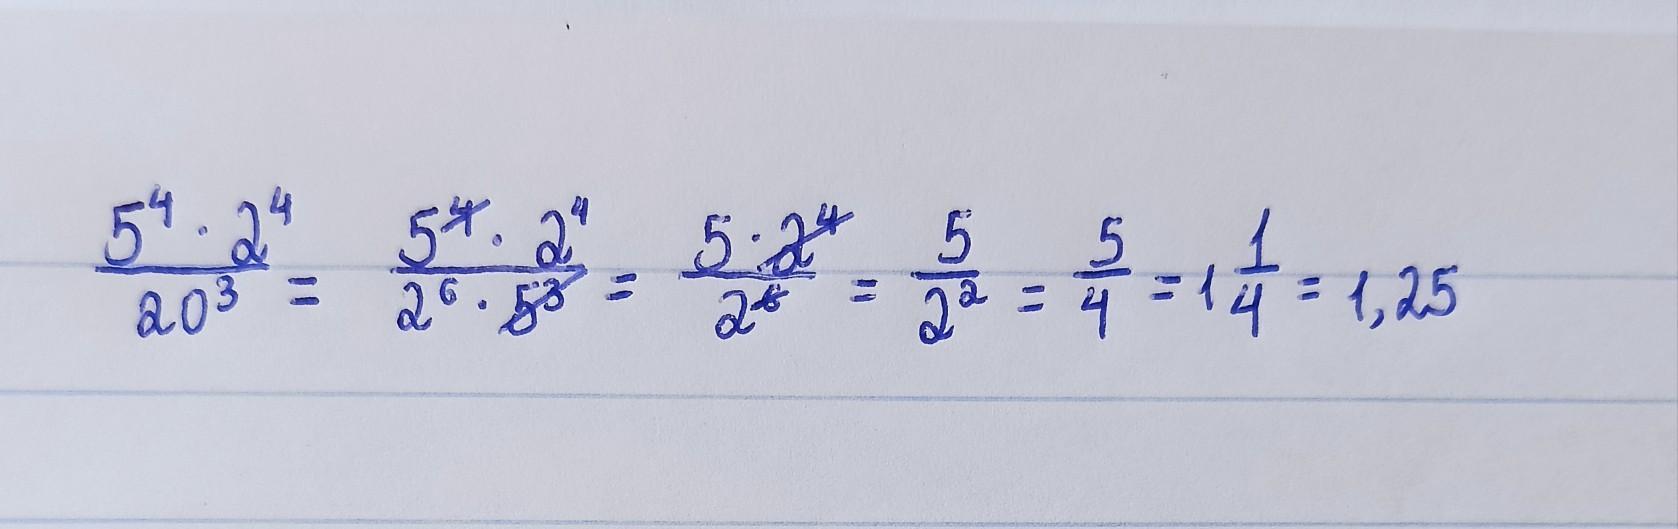 5⁴ · 2⁴ / 20³ = 5⁴ · 2⁴ / 2⁶ · 5³ = 5 · 2⁴ / 2⁶ = 5 / 2² = 5 / 4 = 1 1/4 = 1,25